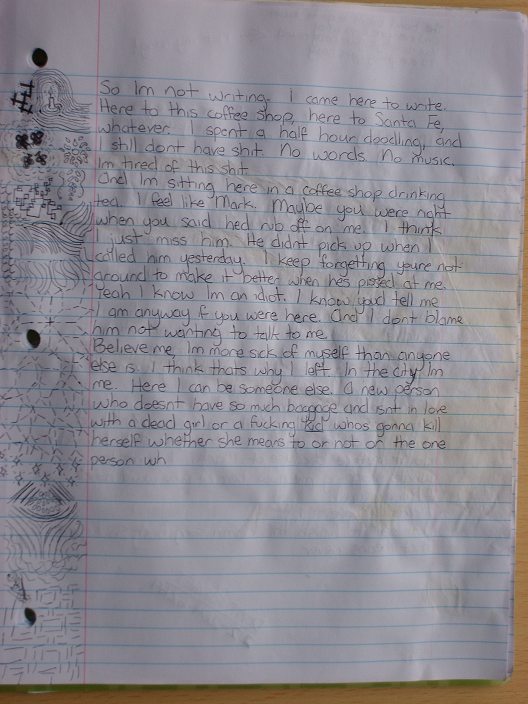 So Im not writing. I came here to write.
Here to this coffee shop, here to Santa Fe,
whatever. I spent a half hour doodling, and
I still dont have shit. No words. No music.
Im tired of this shit.
And Im sitting here in a coffee shop drinking
tea. I feel like Mark. Maybe you were right
when you said hed rub off on me. I think
I just miss him. He didnt pick up when I
called him yesterday. I keep forgetting youre not
around to make it better when hes pissed at me.
Yeah I know Im an idiot. I know youd tell me
I am anyway if you were here. And I dont blame
him not wanting to talk to me.
Believe me, Im more sick of myself than anyone
else is. I think thats why I left. In the city Im
me. Here I can be someone else. A new person
who doesnt have so much baggage and isnt in love
with a dead girl or a fucking kid whos gonna kill
herself whether she means to or not or the one
person wh